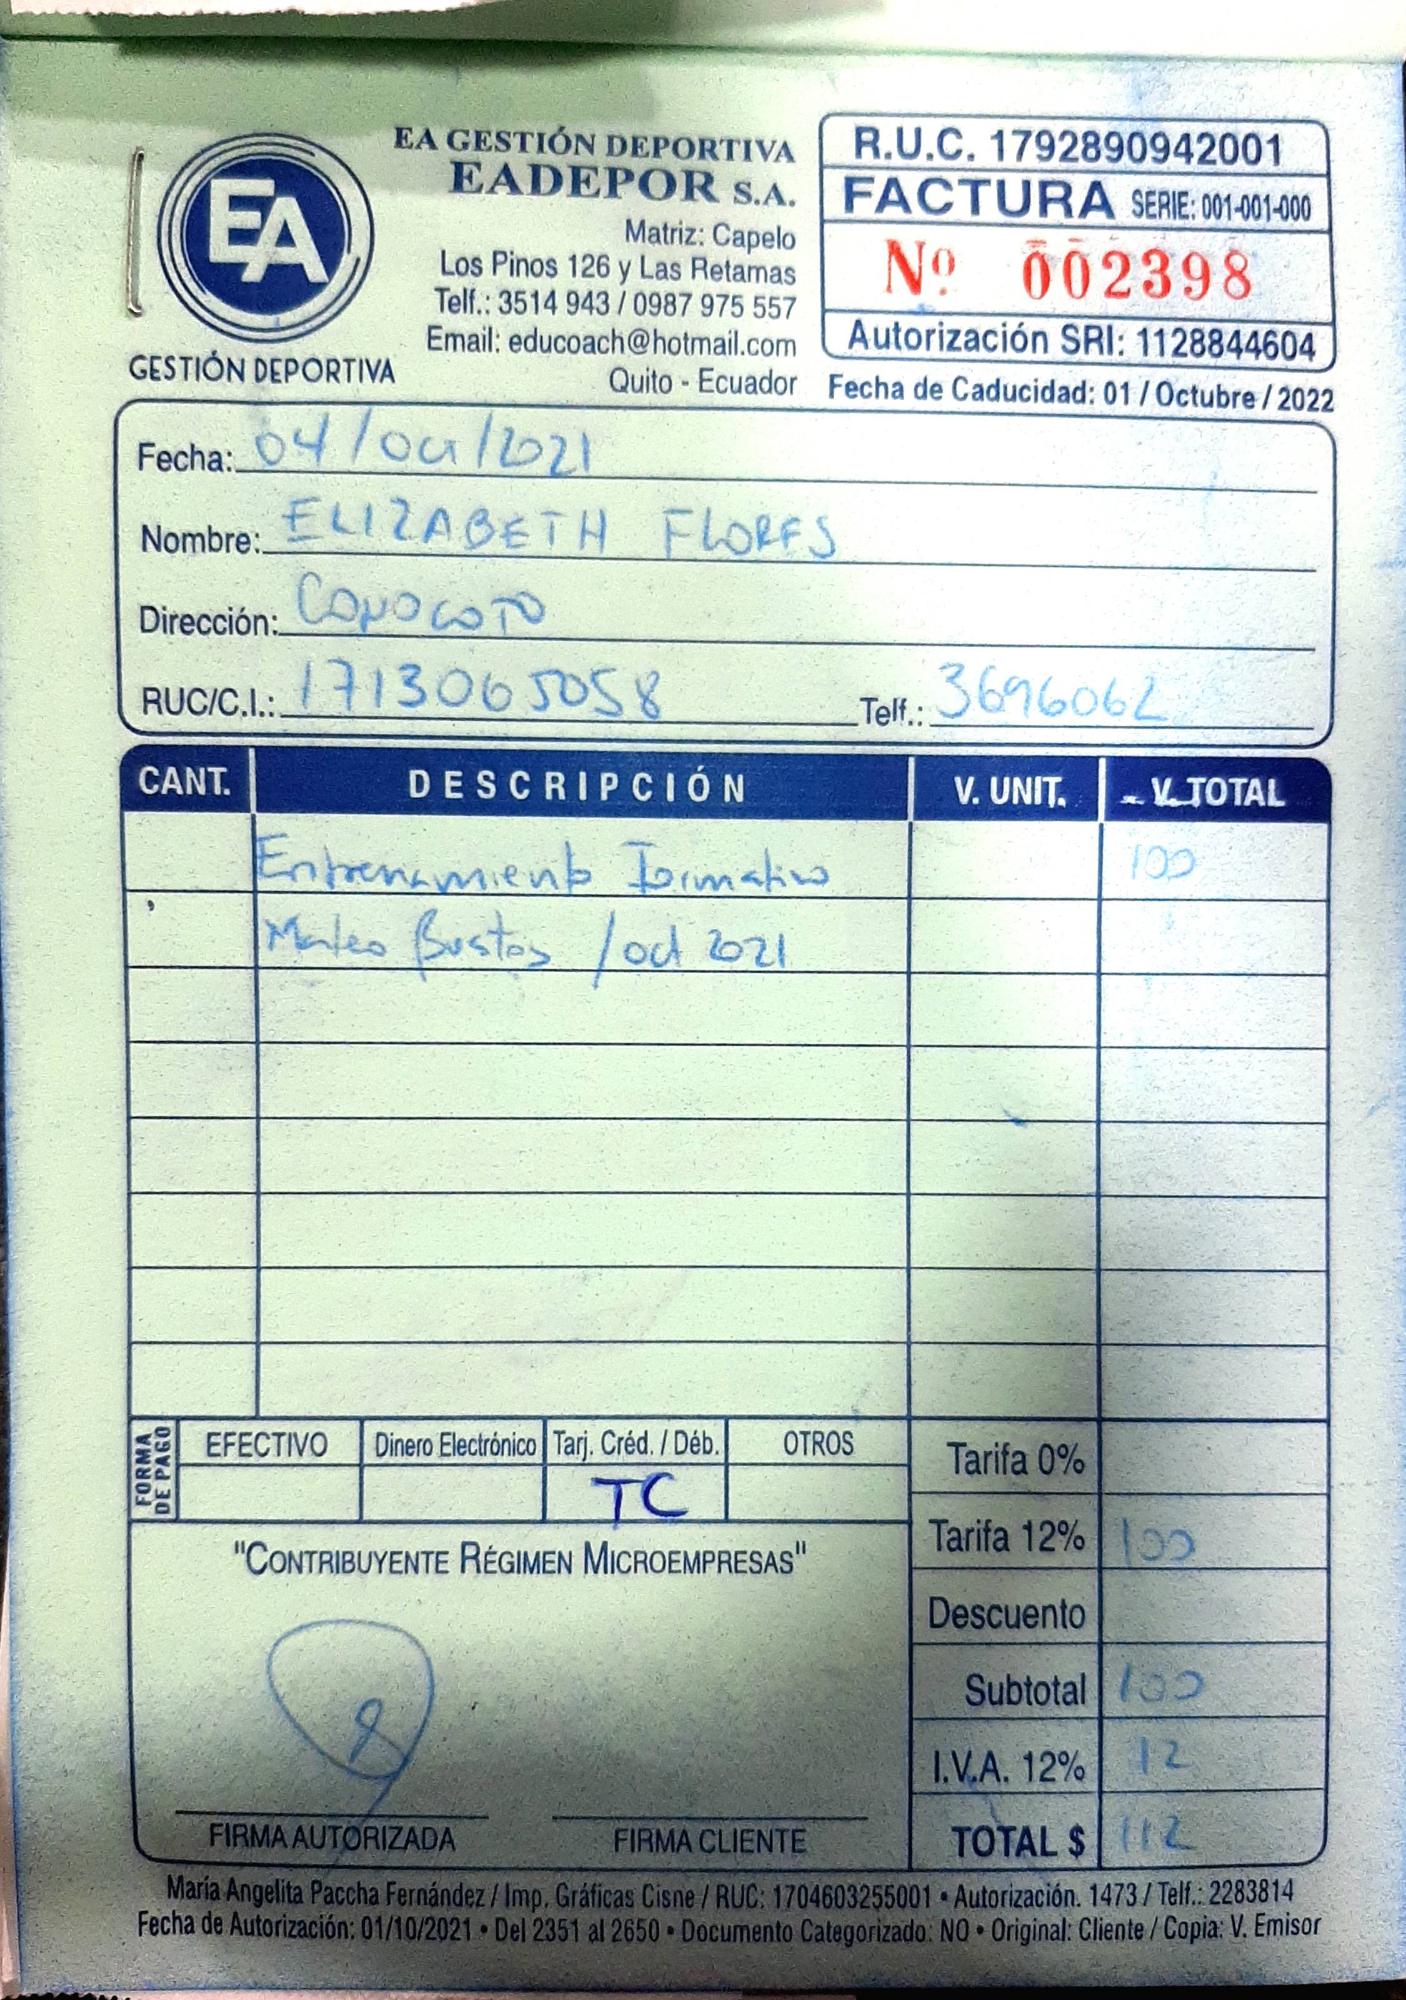 EA GESTIÓN DEPORTIVA
EADEPOR S.A.
Matriz: Capelo
Los Pinos 126 y Las Retamas
Telf.: 3514 943 / 0987 975 557
Email: educoach@hotmail.com
Quito - Ecuador
EA
GESTIÓN DEPORTIVA
R.U.C. 1792890942001
FACTURA SERIE: 001-001-000
Nº 002398
Autorización SRI: 1128844604
Fecha de Caducidad: 01 / Octubre / 2022
Fecha: 04/Oct/2021
Nombre: ELIZABETH FLORES
Dirección: CONOCOTO
RUC/C.I.: 1713065058 Telf.: 3696062
CANT. DESCRIPCIÓN V. UNIT. V. TOTAL
Entrenamiento Formativo 100
Mateo Bustos /oct 2021
FORMA DE PAGO
EFECTIVO Dinero Electrónico Tarj. Créd. / Déb. OTROS
TC
Tarifa 0%
Tarifa 12% 100
Descuento
Subtotal 100
I.V.A. 12% 12
TOTAL $ 112
"CONTRIBUYENTE RÉGIMEN MICROEMPRESAS"
FIRMA AUTORIZADA FIRMA CLIENTE
María Angelita Paccha Fernández / Imp. Gráficas Cisne / RUC: 1704603255001 • Autorización. 1473 / Telf.: 2283814
Fecha de Autorización: 01/10/2021 • Del 2351 al 2650 • Documento Categorizado: NO • Original: Cliente / Copia: V. Emisor